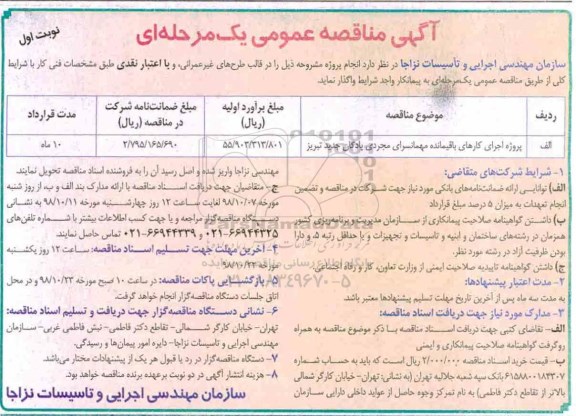 آگهی مناقصه عمومی یک‌مرحله‌ای
نوبت اول
سازمان مهندسی اجرایی و تأسیسات نزاجا در نظر دارد انجام پروژه مشروحه ذیل را در قالب طرح‌های غیرعمرانی، و با اعتبار نقدی طبق مشخصات فنی کار با شرایط
کلی از طریق مناقصه عمومی یک‌مرحله‌ای به پیمانکار واجد شرایط واگذار نماید.
ردیف
موضوع مناقصه
مبلغ برآورد اولیه (ریال)
مبلغ ضمانت‌نامه شرکت در مناقصه (ریال)
مدت قرارداد
الف
پروژه اجرای کارهای باقیمانده مهمانسرای مجردی پادگان جدید تبریز
۵۵/۹۰۳/۳۱۳/۸۰۱
۲/۷۹۵/۱۶۵/۶۹۰
۱۰ ماه
۱- شرایط شرکت‌های متقاضی:
الف) توانایی ارائه ضمانت‌نامه‌های بانکی مورد نیاز جهت شرکت در مناقصه و تضمین
انجام تعهدات به میزان ۵ درصد مبلغ قرارداد
ب) داشتن گواهینامه صلاحیت پیمانکاری از سازمان مدیریت و برنامه‌ریزی کشور
همزمان در رشته‌های ساختمان و ابنیه و تاسیسات و تجهیزات و با حداقل رتبه ۵، و دارا
بودن ظرفیت آزاد در رشته مورد نظر.
ج) داشتن گواهینامه تاییدیه صلاحیت ایمنی از وزارت تعاون، کار و رفاه اجتماعی.
۲- مدت اعتبار پیشنهادها:
به مدت سه ماه پس از آخرین تاریخ مهلت تسلیم پیشنهادها معتبر باشد.
۳- مدارک مورد نیاز جهت دریافت اسناد مناقصه:
الف- تقاضای کتبی جهت دریافت اسناد مناقصه با ذکر موضوع مناقصه به همراه
روگرفت گواهینامه صلاحیت پیمانکاری و ایمنی
ب- قیمت خرید اسناد مناقصه ۲/۰۰۰/۰۰۰ ریال است که باید به حساب شماره
۶۱۵۸۸۰۰۱۸۴۳۰۷ بانک سپه شعبه جلالیه تهران (به نشانی: تهران- خیابان کارگر شمالی
بالاتر از تقاطع دکتر فاطمی) به نام تمرکز وجوه حاصل از عواید داخلی دارایی سازمان
مهندسی نزاجا واریز شده و اصل رسید آن را به فروشنده اسناد مناقصه تحویل نمایند.
ج- متقاضیان جهت دریافت اسناد مناقصه با ارائه مدارک بند الف و ب، از روز شنبه
مورخه ۹۸/۱۰/۰۷ لغایت ساعت ۱۲ روز چهارشنبه مورخه ۹۸/۱۰/۱۱ به نشانی
دستگاه مناقصه‌گزار مراجعه و یا جهت کسب اطلاعات بیشتر با شماره تلفن‌های
۰۲۱-۶۶۹۴۴۳۲۵ و ۰۲۱-۶۶۹۴۴۳۳۹ تماس حاصل نمایند.
۴- آخرین مهلت جهت تسلیم اسناد مناقصه: ساعت ۱۲ روز یکشنبه
مورخه ۹۸/۱۰/۲۲
۵- بازگشایی پاکات مناقصه: در ساعت ۱۰ صبح مورخه ۹۸/۱۰/۲۳ و در محل
اتاق جلسات دستگاه مناقصه‌گزار انجام خواهد گرفت.
۶- نشانی دستگاه مناقصه‌گزار جهت دریافت و تسلیم اسناد مناقصه:
تهران- خیابان کارگر شمالی- تقاطع دکتر فاطمی- نبش فاطمی غربی- سازمان
مهندسی اجرایی و تاسیسات نزاجا- دایره امور پیمان‌ها و رسیدگی.
۷- دستگاه مناقصه‌گزار در رد یا قبول هر یک از پیشنهادات مختار می‌باشد.
۸- هزینه انتشار آگهی در دو نوبت برعهده برنده مناقصه خواهد بود.
سازمان مهندسی اجرایی و تاسیسات نزاجا